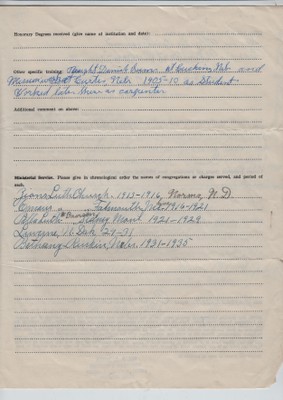 Honorary Degrees received (give name of institution and date):
Other specific training: Taught Danish at Ruskin, Neb. and
at Curtis, Nebr. 1905-10 as student
Worked later there as carpenter
Additional comment on above:
Ministerial Service. Please give in chronological order the names of congregations or charges served, and period of
each.
Zions Luth Church 1913-1916, Norma, N.D.
Emaus " 1916-1921
Luth Sidney Mont. 1921-1929
Luverne, N. Dak. 29-31
Bethany, Ruskin, Nebr. 1931-1935